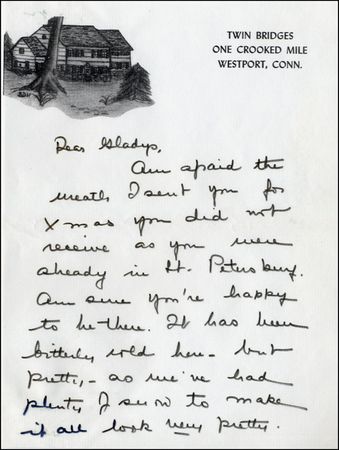 TWIN BRIDGES
ONE CROOKED MILE
WESTPORT, CONN.
Dear Gladys,
Am afraid the
wreath I sent you for
Xmas you did not
receive as you were
already in St. Petersburg.
Am sure you're happy
to be there. It has been
bitterly cold here - but
pretty, - as we've had
plenty of snow to make
it all look very pretty.